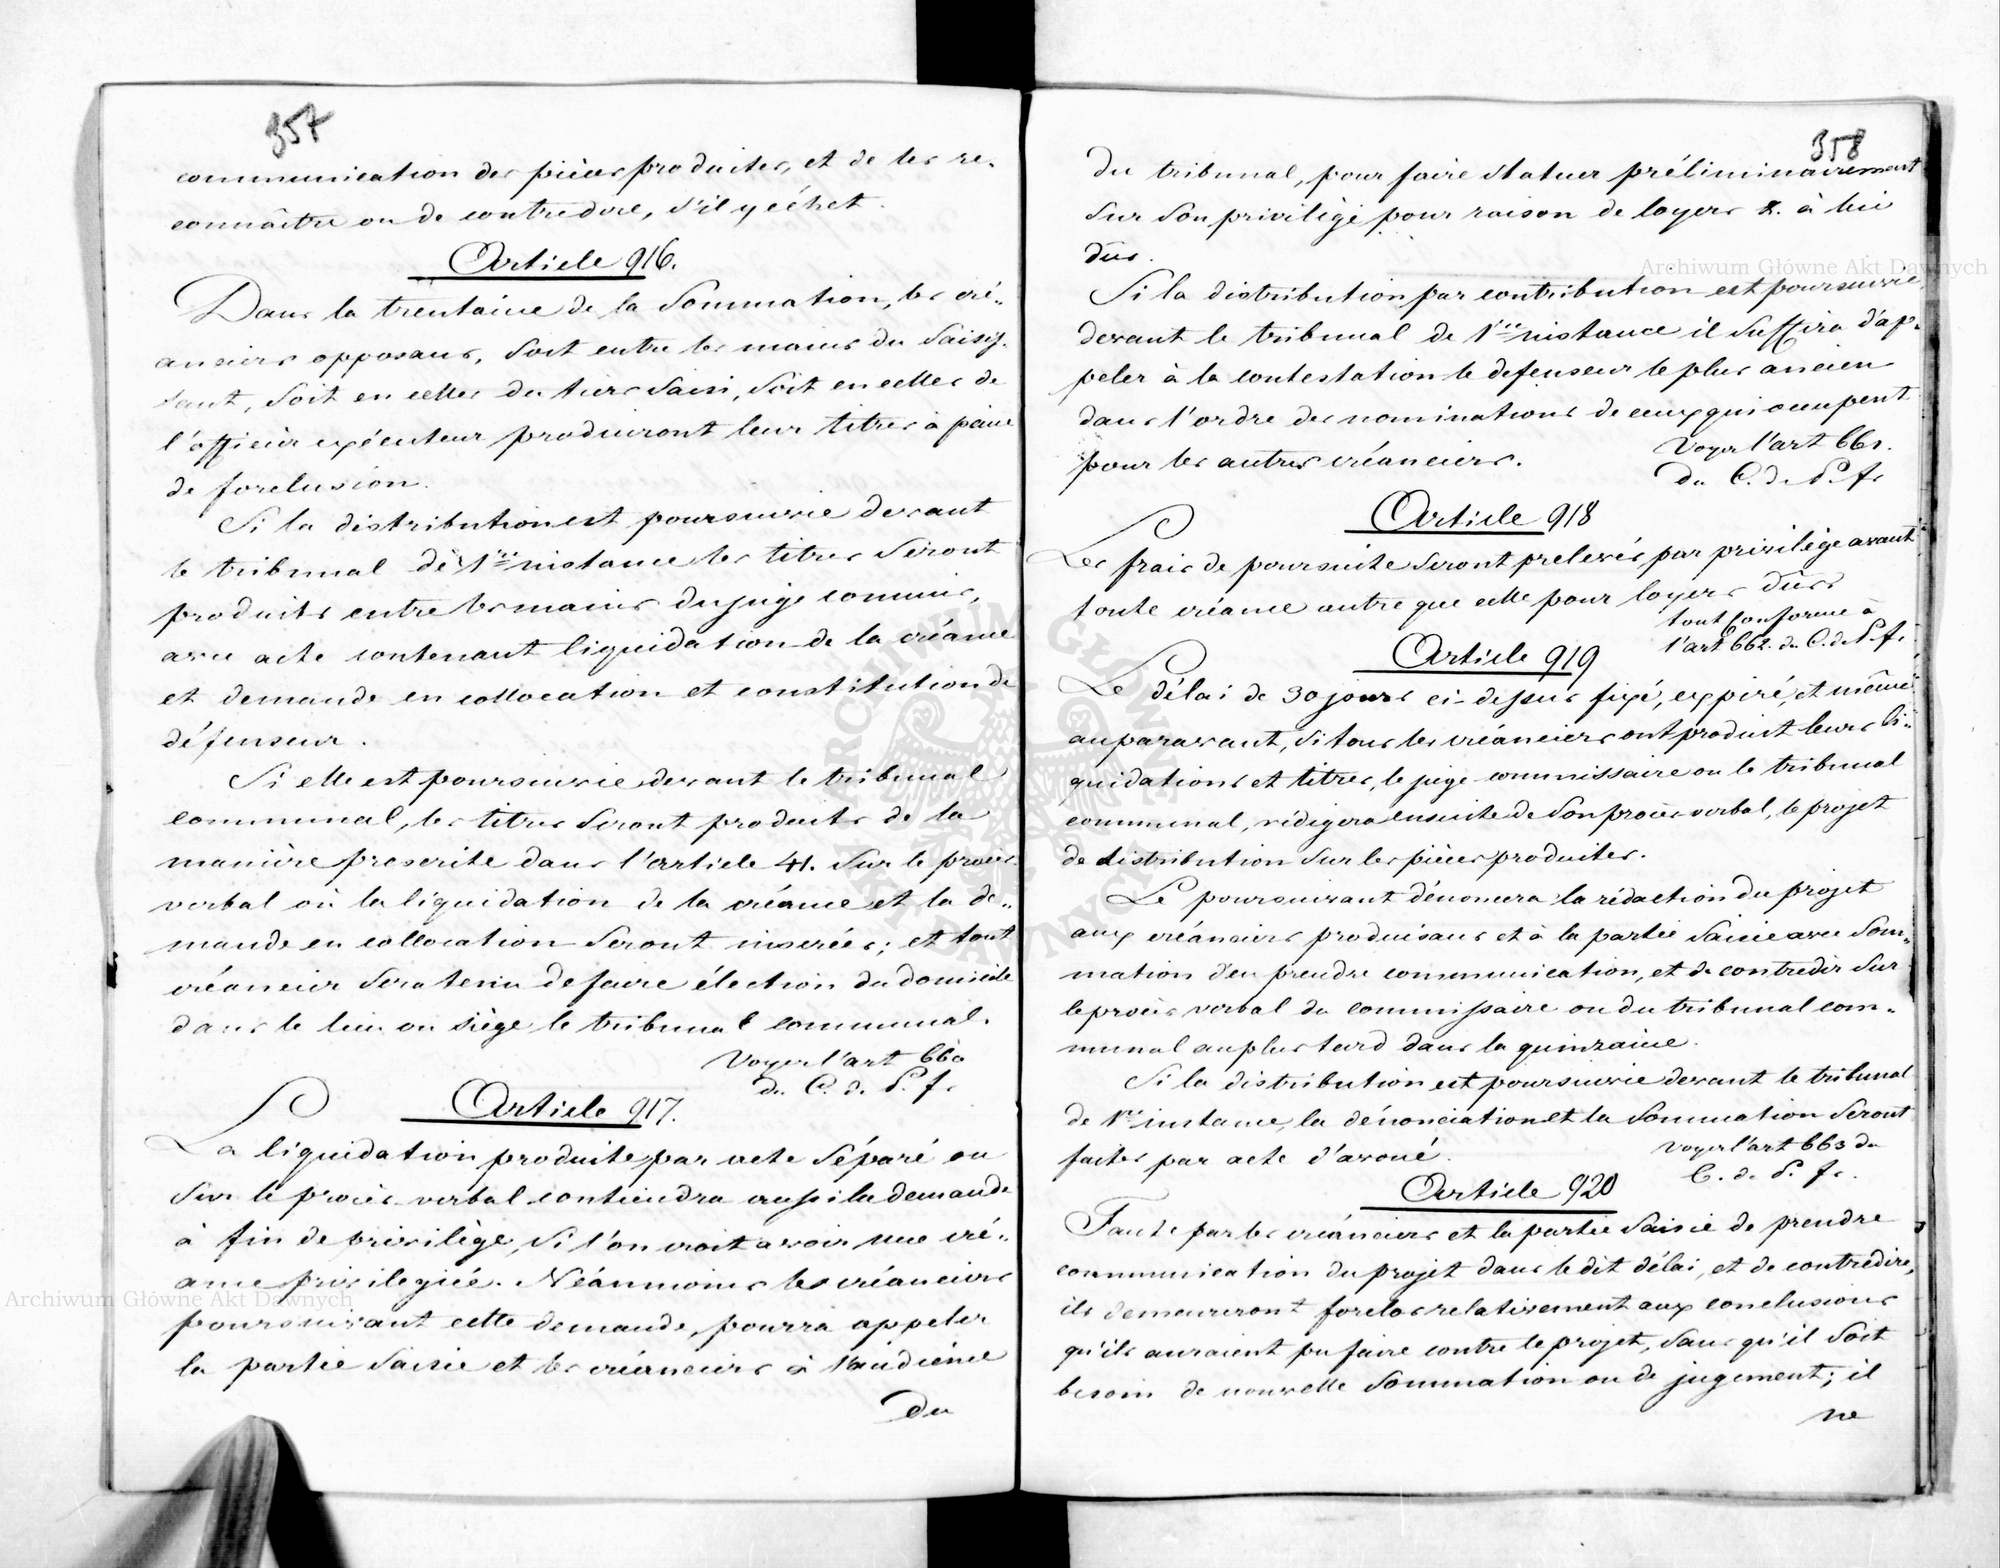 357
communication des pièces produites, et de les re-
connaître ou de contredire, s'il y échet.
Article 916.
Dans la trentaine de la Sommation, les cré-
anciers opposans, soit entre les mains du Saisis-
sant, soit en celles du tiers Saisi, soit en celles de
l'officier exécuteur produiront leur titres à peine
de forclusion.
Si la distribution est poursuivie devant
le tribunal de 1re instance les titres Seront
produits entre les mains du juge commis,
avec acte contenant liquidation de la créance
et demande en collocation et constitution de
défenseur.
Si elle est poursuivie devant le tribunal
communal, les titres Seront produits de la
manière prescrite dans l'article 41. Sur le procès
verbal où la liquidation de la créance et la de-
mande en collocation Seront inserées; et tout
créancier Sera tenu de faire élection du domicile
dans le lieu ou siège le tribunal communal.
Voyer l'art 660
du C. de P. fr.
Article 917.
La liquidation produite par acte Séparé ou
Sur le procès verbal contiendra aussi la demande
à fin de privilège, Si l'on croit avoir une cré-
ance privilegiée. Néanmoins les créanciers
poursuivant cette demande, pourra appeler
la partie Saisie et les créanciers à l'audience
du
358
du tribunal, pour faire Statuer préliminairement
Sur Son privilège pour raison de loyers &. à lui
dûs.
Si la distribution par contribution est poursuivie
devant le tribunal de 1re instance il Suffira d'ap-
peler à la contestation le defenseur le plus ancien
dans l'ordre des nominations de ceux qui occupent
pour les autres créanciers.
Voyer l'art 661.
du C. de P. fr.
Article 918
Les frais de poursuite Seront prelevés par privilège avant
toute créance autre que celle pour loyers dûs
tout conforme à
l'art 662. du C. de P. fr.
Article 919
Le délai de 30 jours ci-dessus fixé, expiré, et même
auparavant, Si tous les créanciers ont produit leurs li-
quidations et titres, le juge commissaire ou le tribunal
communal, rédigera ensuite de Son procès-verbal, le projet
de distribution Sur les pièces produites.
Le poursuivant dénoncera la rédaction du projet
aux créanciers produisans et à la partie Saisie avec Som-
mation d'en prendre communication, et de contredir Sur
le procès verbal du commissaire ou du tribunal com-
munal au plus tard dans la quinzaine.
Si la distribution est poursuivie devant le tribunal
de 1re instance, la dénonciation et la Sommation Seront
faites par acte d'avoué.
Voyer l'art 663 du
C. de P. fr.
Article 920
Faute par les créanciers et la partie Saisie de prendre
communication du projet dans le dit délai, et de contredire,
ils demeureront forclos relativement aux conclusions
qu'ils auraient pu faire contre le projet, Sans qu'il Soit
besoin de nouvelle Sommation ou de jugement; il
ne
Archiwum Główne Akt Dawnych
Archiwum Główne Akt Dawnych
ARCHIWUM GŁÓWNE AKT DAWNYCH